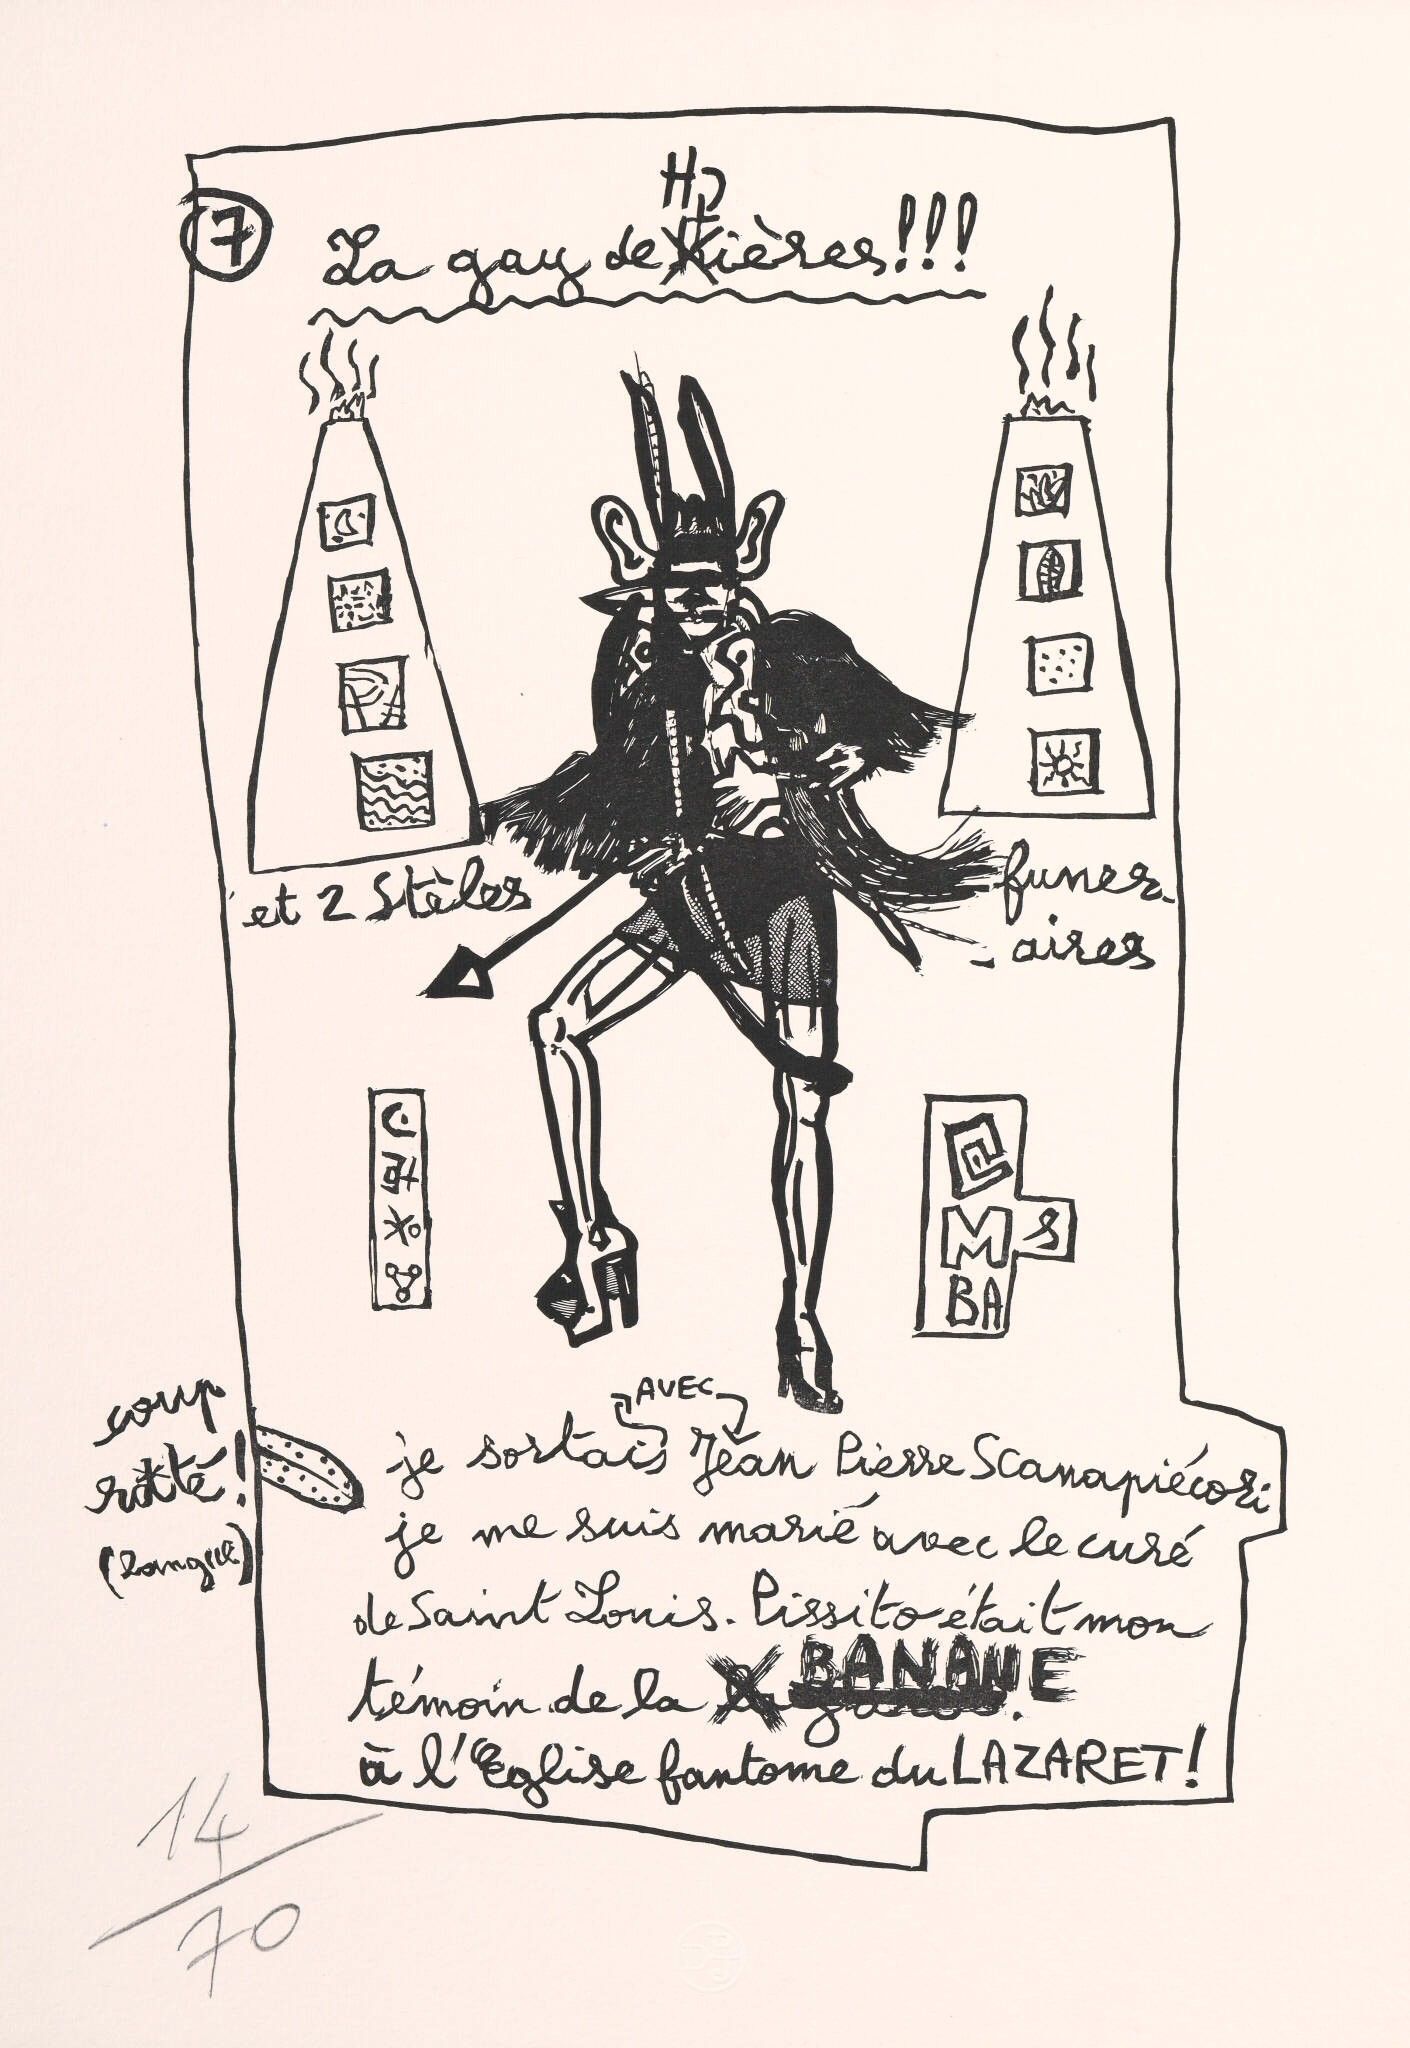 7
HJ
La gay de Kières!!!
et 2 Stèles
funer-
-aires
@
M S
BA
coup
raté!
(langue)
AVEC
je sortais Jean Pierre Scanapiécori
je me suis marié avec le curé
de Saint Louis. Pissito était mon
témoin de la BANANE
à l'Eglise fantome du LAZARET!
14/70